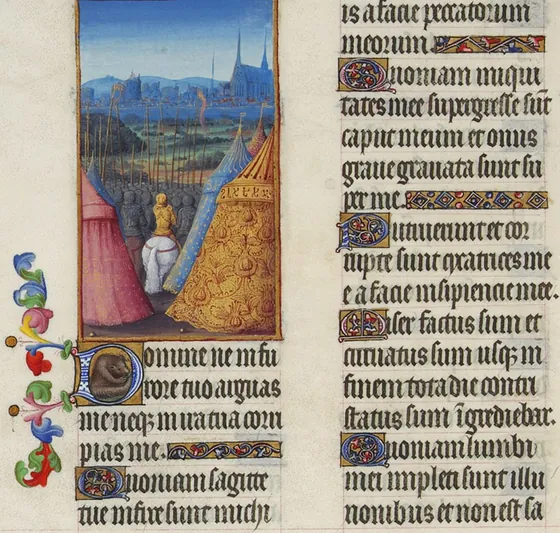 Domine ne in fu
rore tuo arguas
me neqꝫ in ira tua corri
pias me.
Quoniam sagitte
tue infixe sunt michi
is a facie peccatorum
meorum.
Quoniam iniqui
tates mee suꝑgresse sūt
caput meum et onus
graue grauata sunt su
per me.
Putruerunt et cor
rupte sunt cicatrices me
e a facie insipiencie mee.
Miser factus sum et
curuatus sum usqꝫ in
finem tota die contri
status sum īgrediebar.
Quoniam lumbi
mei impleti sunt illu
sionibus et non est sa